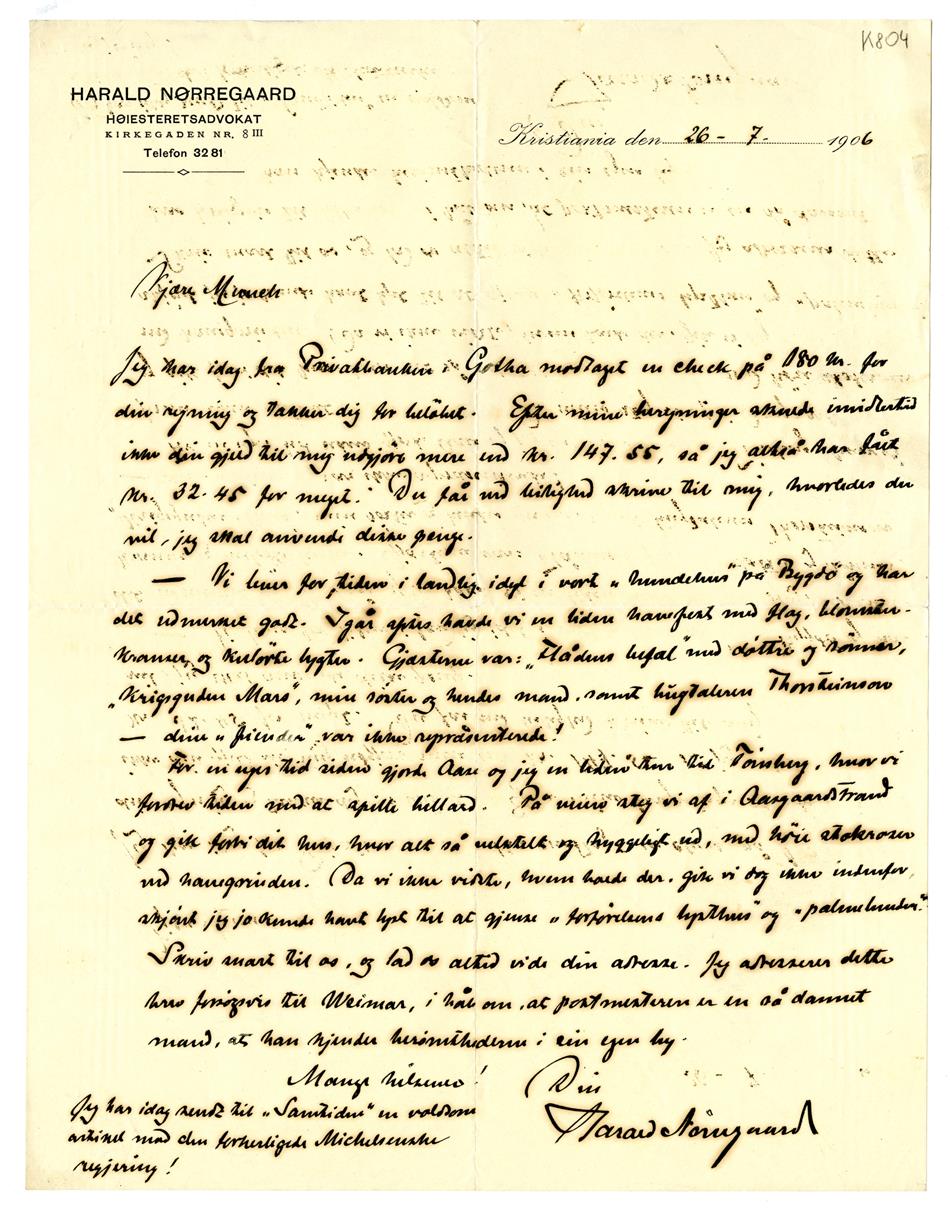 K804
HARALD NØRREGAARD
HØIESTERETSADVOKAT
KIRKEGADEN NR. 8 III
Telefon 3281
Kristiania den 26 - 7. 1906
Kjære Munch
Jeg har idag fra Privatbanken i Gotha modtaget en check på 180 kr. for
din regning og takker dig for beløbet. Efter mine beregninger skulde imidlertid
ikke din gjeld til mig udgjøre mere end kr. 147.55, så jeg altså har fået
kr. 32.45 for meget. Du får ved leilighed skrive til mig, hvorledes du
vil, jeg skal anvende disse penge.
— Vi lever for tiden i landlig idyl i vort „hundehus" på Bygdø og har
det udmerket godt. Igår aftes havde vi en liden havefest med flag, blomster-
kranser og kulørte lygter. Gjæsterne var: „Flådens befal" med døttre og sønner,
„Krigsguden Mars", min søster og hendes mand, samt bugtaleren Thorsteinson
— dine „fiender" var ikke repræsenterede!
For en uges tid siden gjorde Aase og jeg en liden tur til Tønsberg, hvor vi
fordrev tiden med at spille billard. På veien steg vi af i Aasgaardstrand
og gik forbi dit hus, hvor alt så velstelt og hyggeligt ud, med høie stokroser
ved havegrinden. Da vi ikke vidste, hvem boede der, gik vi dog ikke indenfor,
skjønt jeg jo kunde havt lyst til at gjense „forførelsens lysthus" og „palmelunden".
Skriv snart til os, og lad os altid vide din adresse. Jeg adresserer dette
brev forsøgsvis til Weimar, i håb om, at postmesteren er en så dannet
mand, at han kjender berømthederne i sin egen by.
Mange hilsener!
Din
Harald Nørregaard
Jeg har idag sendt til „Samtiden" en voldsom
artikel mod den forherligede Michelsenske
regjering!